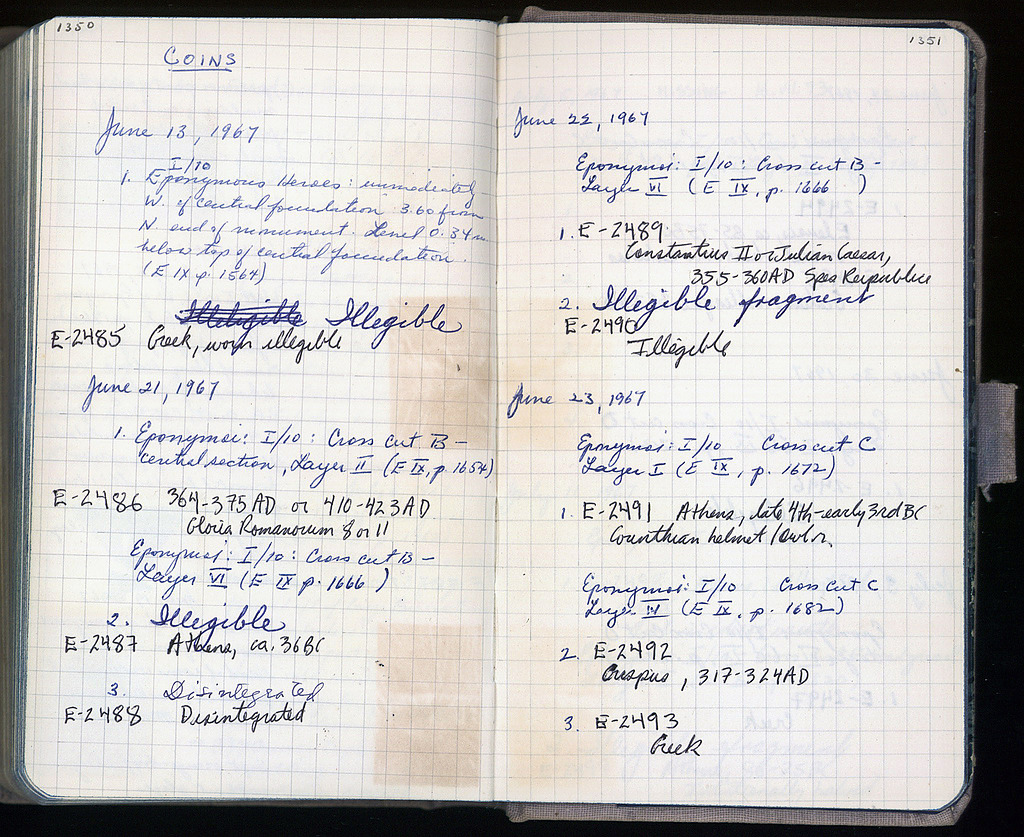 1350
COINS
June 13, 1967
I/10
1. Eponymous Heroes: immediately
W. of central foundation 3.60 from
N. end of monument. Level 0.34 m.
below top of central foundation.
(E IX p. 1564)
Illegible Illegible
E-2485 Greek, worn illegible
June 21, 1967
1. Eponymoi: I/10: Cross cut B -
central section, Layer II (E IX, p. 1654)
E-2486 364-375 AD or 410-423 AD
Gloria Romanorum 8 or 11
Eponymoi: I/10: Cross cut B -
Layer VI (E IX p. 1666)
2. Illegible
E-2487 Athens, ca. 36 BC
3. Disintegrated
E-2488 Disintegrated
1351
June 22, 1967
Eponymoi: I/10: Cross cut B -
Layer VI (E IX, p. 1666)
1. E-2489
Constantius II or Julian Caesar,
355-360 AD Spes Reipublice
2. Illegible fragment
E-2490
Illegible
June 23, 1967
Eponymoi: I/10 Cross cut C
Layer I (E IX, p. 1672)
1. E-2491 Athens, late 4th-early 3rd BC
Corinthian helmet/Owl r.
Eponymoi: I/10 Cross cut C
Layer (E IX, p. 1682)
2. E-2492
Crispus, 317-324 AD
3. E-2493
Greek